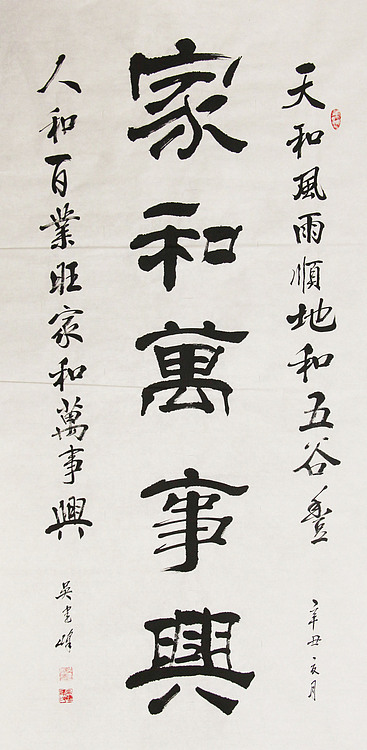 天和風雨順地和五谷豊
辛丑亥月
家和萬事興
人和百業旺家和萬事興